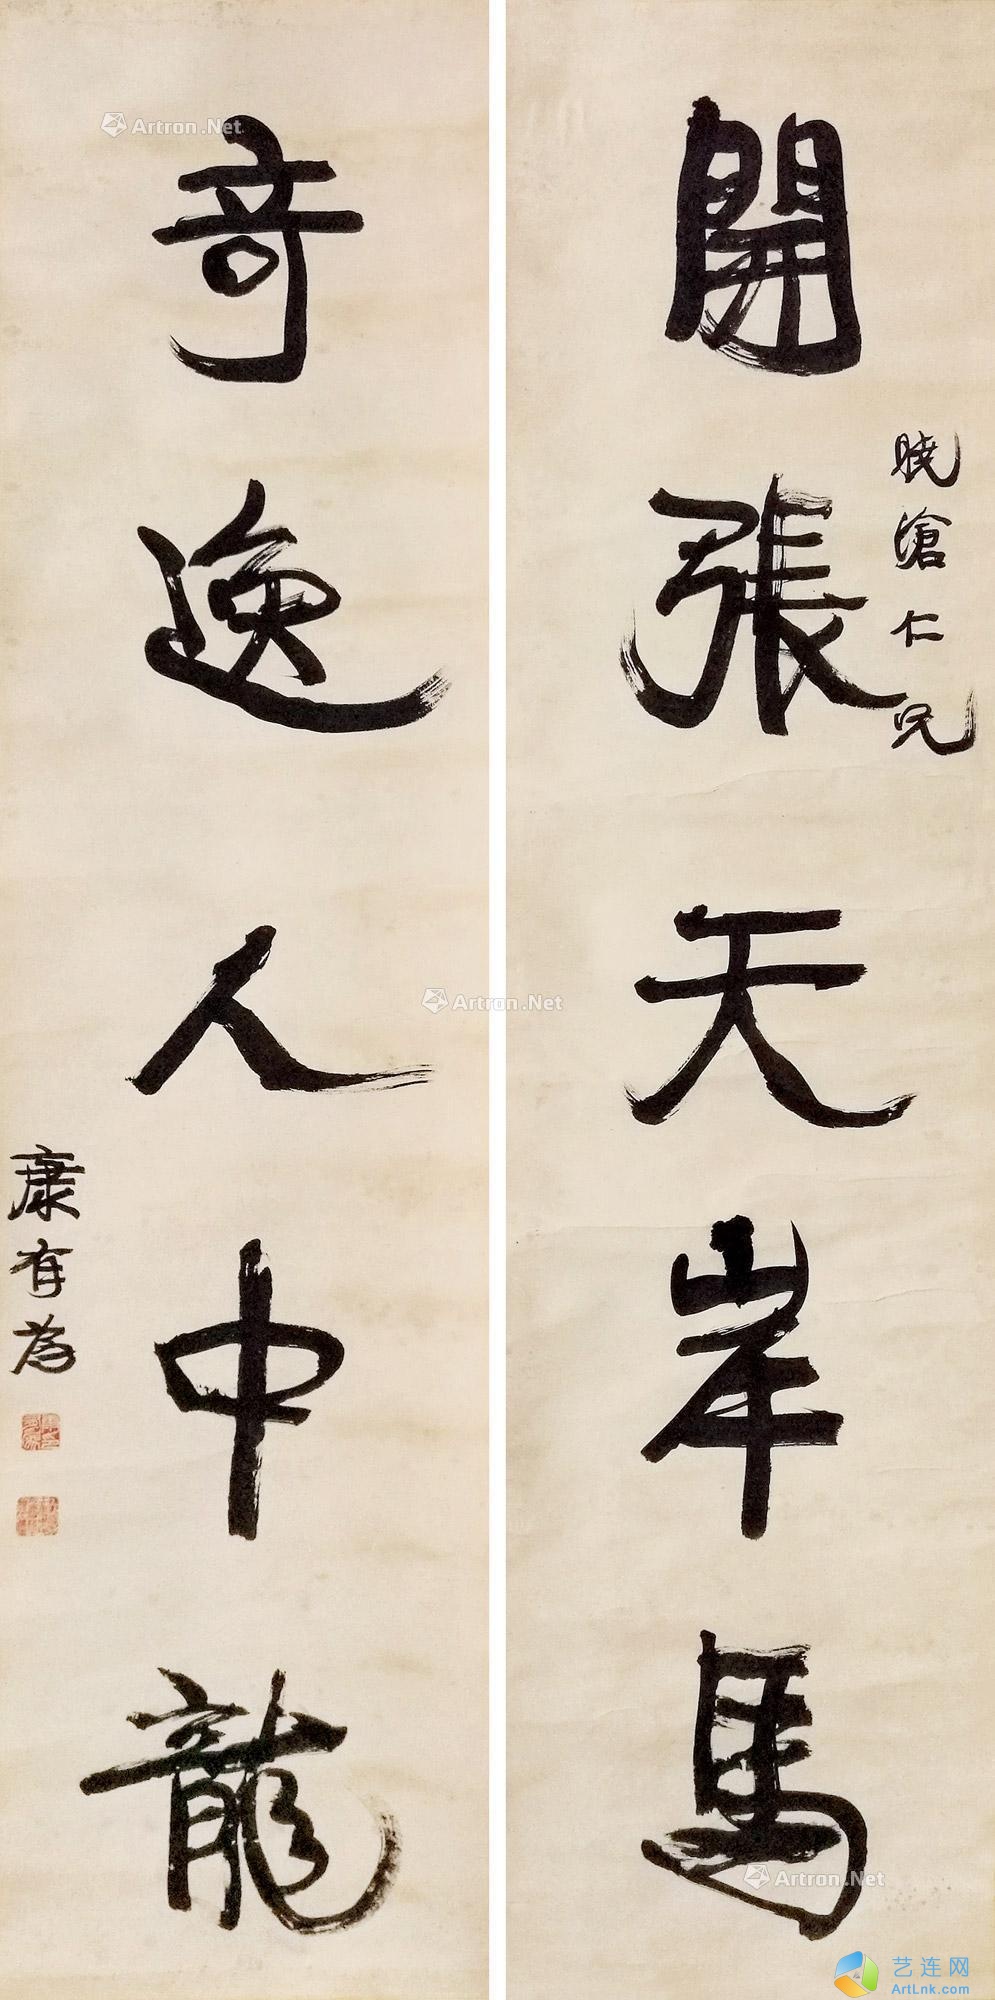 開張天岸馬
曉滄仁兄
奇逸人中龍
康有為
Artron.Net
Artron.Net
Artron.Net
艺连网
ArtLnk.com